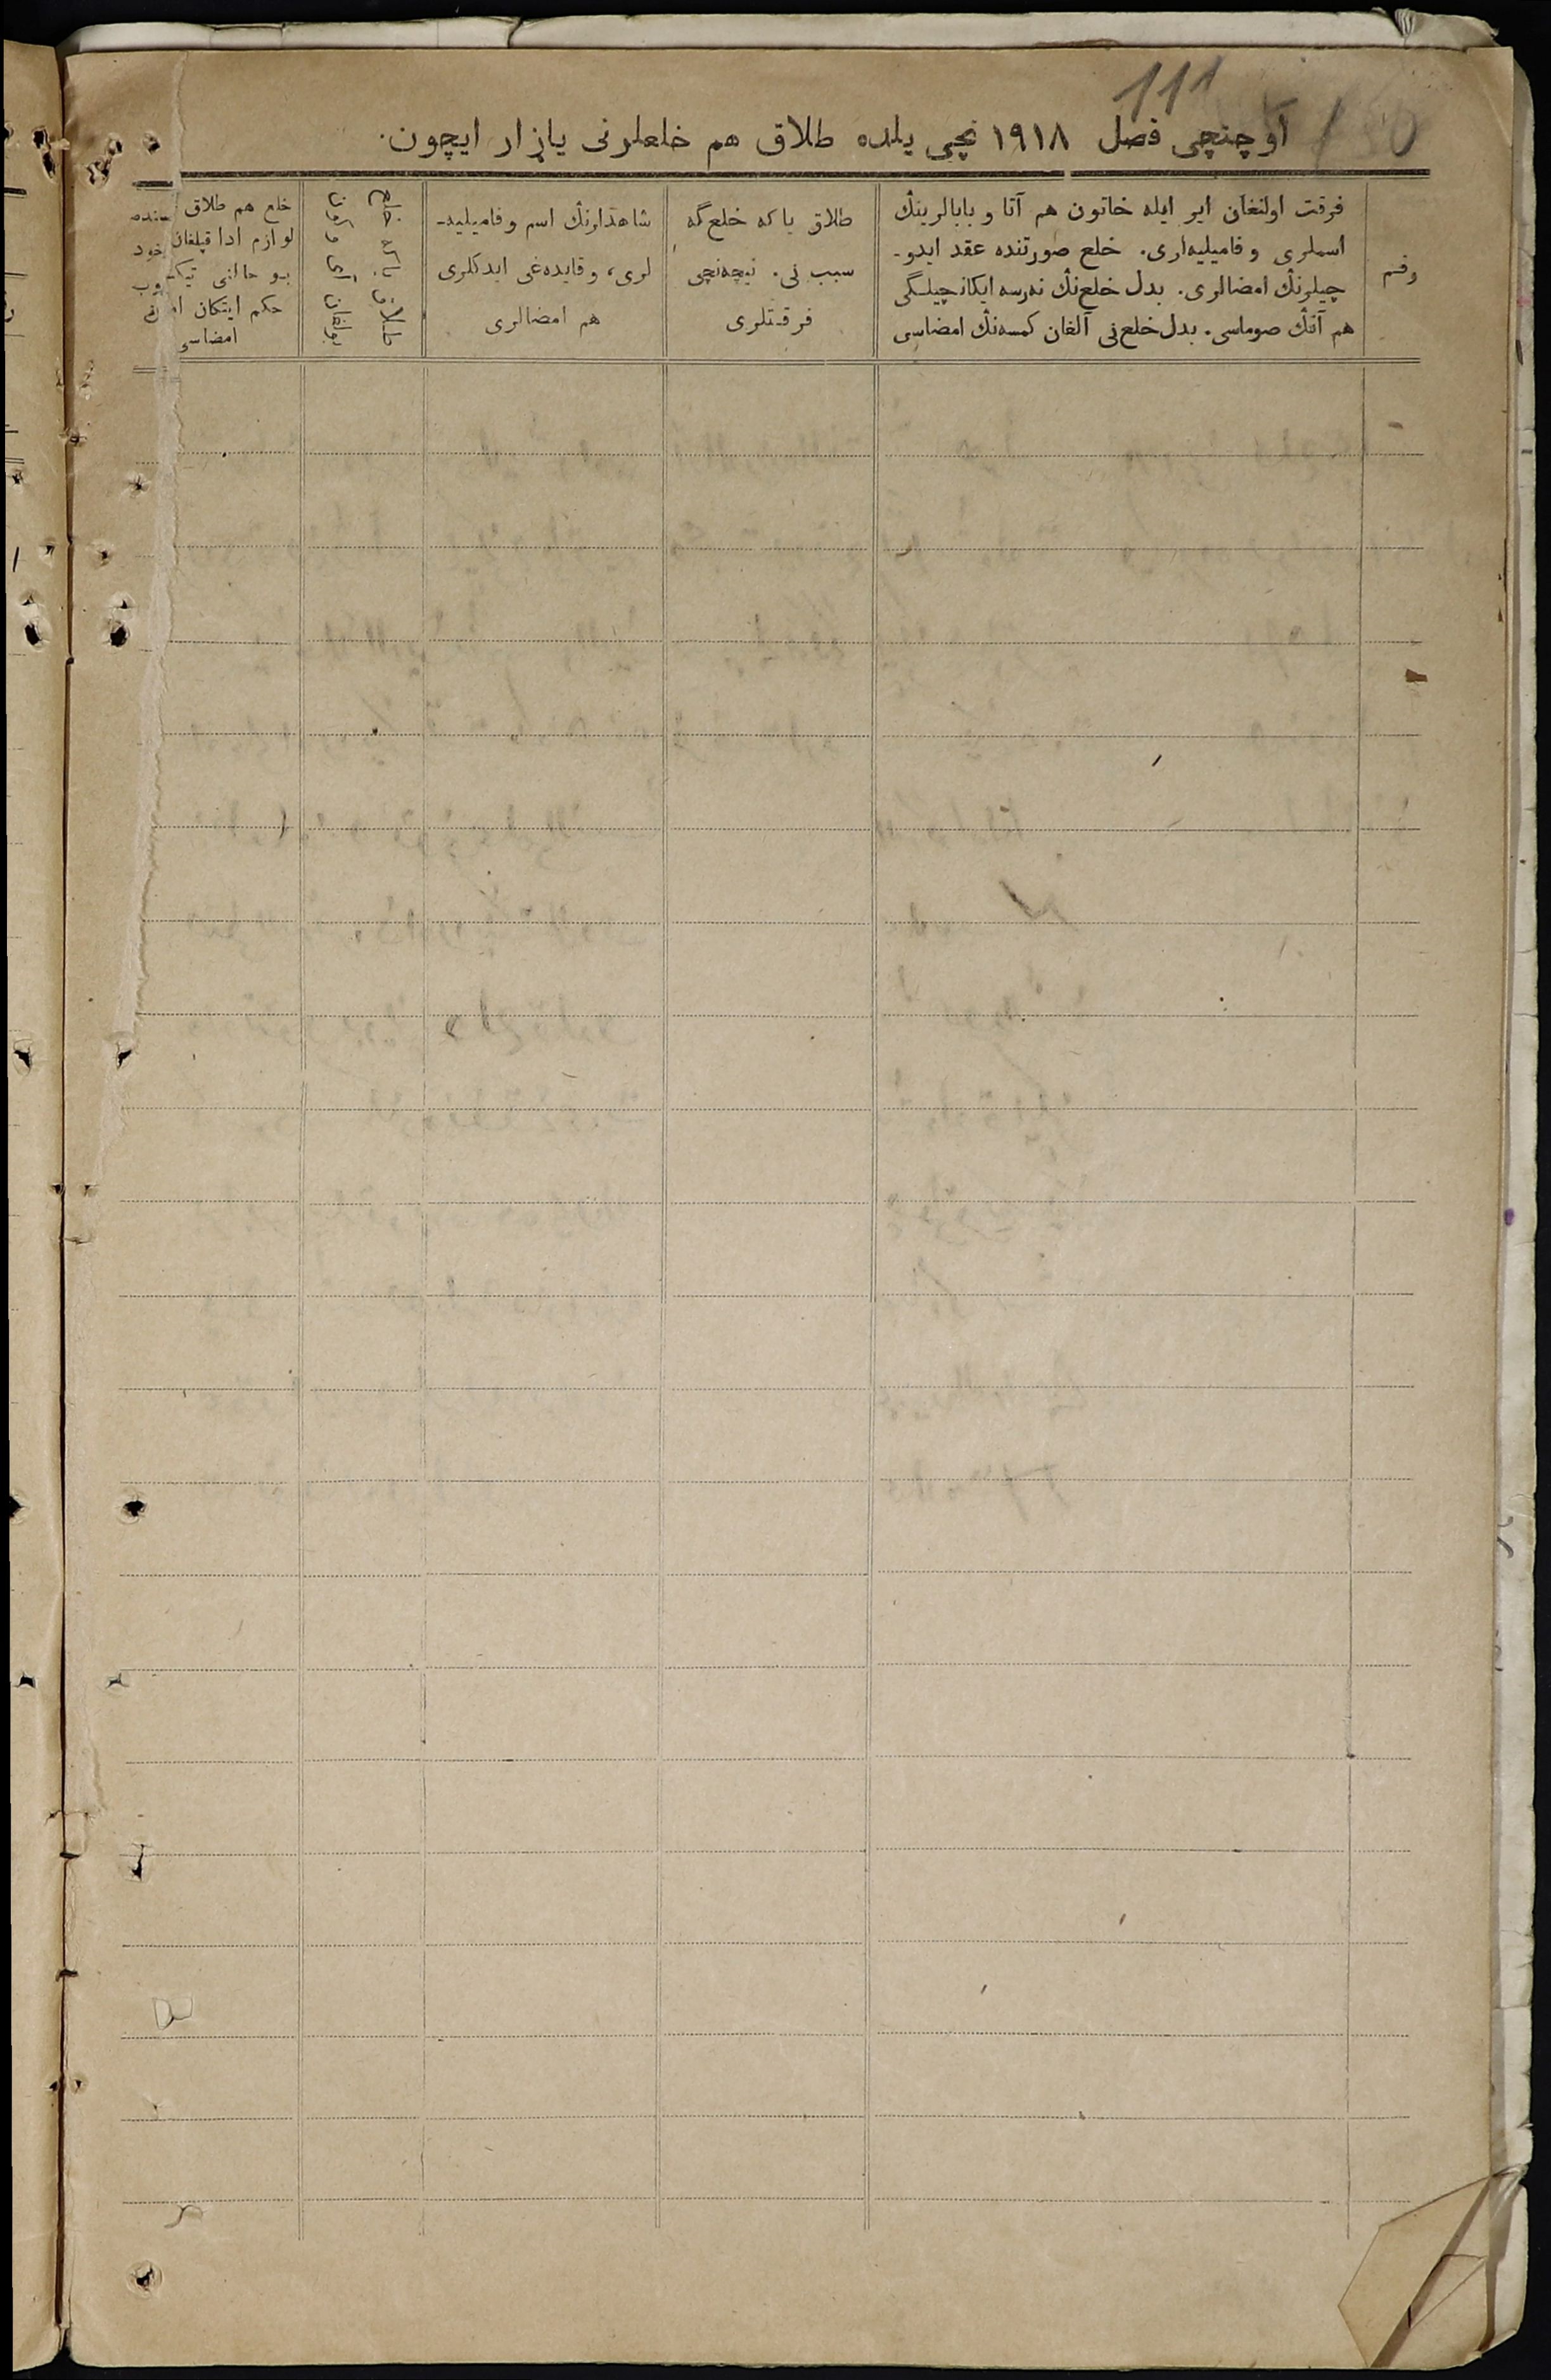 111
اوچنچی فصل ۱۹۱۸ نچی یلده طلاق هم خلعلرنی یازار ایچون.
رقم
فرقت اولنغان ایر ایله خاتون هم آتا و بابالرینڭ
اسملری و فامیلیه‌لری. خلع صورتنده عقد ایدو-
چیلرنڭ امضالری. بدل خلع‌نڭ نه‌رسه ایکانچیلگی
هم آنڭ صوماسی. بدل خلع‌نی آلغان کمسه‌نڭ امضاسی
طلاق یاکه خلع‌گه
سبب نی. نیچه‌نچی
فرقتلری
شاهدلرنڭ اسم و فامیلیه-
لری، و قایده‌غی ایدکلری
هم امضالری
طلاق یاکه خلع
بولغان آی و کون
خلع هم طلاق
لوازم ادا قیلغان
بو حالنی
حکم ایتکان
امضاسی